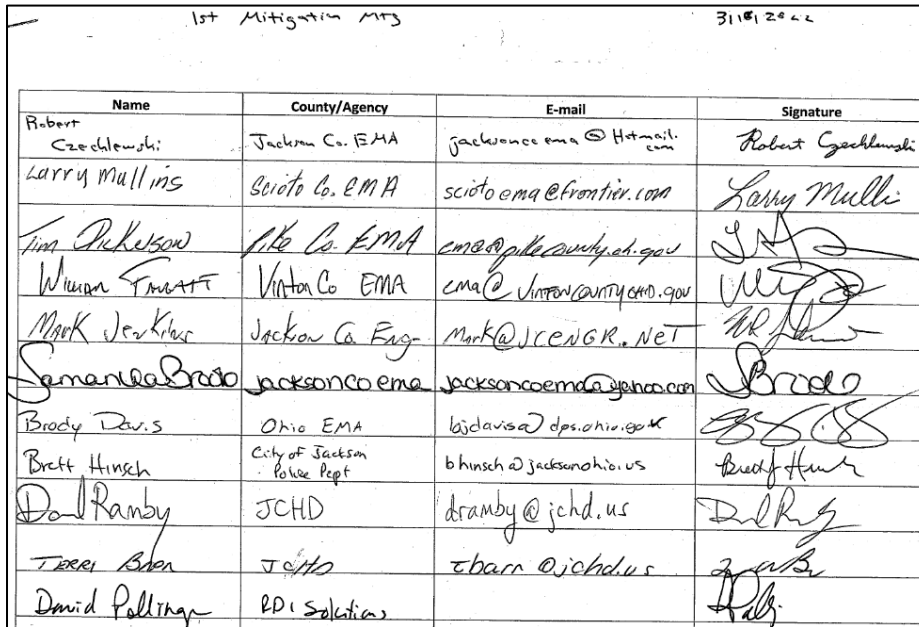 1st Mitigation Mtg 3/18/2022
Name County/Agency E-mail Signature
Robert
Czechlewski Jackson Co. EMA jacksoncoema@Hotmail.
com Robert Czechlewski
Larry Mullins Scioto Co. EMA sciotoema@frontier.com Larry Mulli
Tim Dickerson Pike Co. EMA ema@pikecounty.oh.gov
William Vinton Co EMA ema@vintoncountyohio.gov
Mark Jenkins Jackson Co. Eng. Mark@JCENGR.NET
Samantha Brodo jacksoncoema jacksoncoema@yahoo.com SBrodo
Brody Davis Ohio EMA bjdavis@dps.ohio.gov
Brett Hinsch City of Jackson
Police Dept bhinsch@jacksonohio.us
Ramby JCHD dramby@jchd.us
TERRI JCHD tbarr@jchd.us
David RDI Solutions